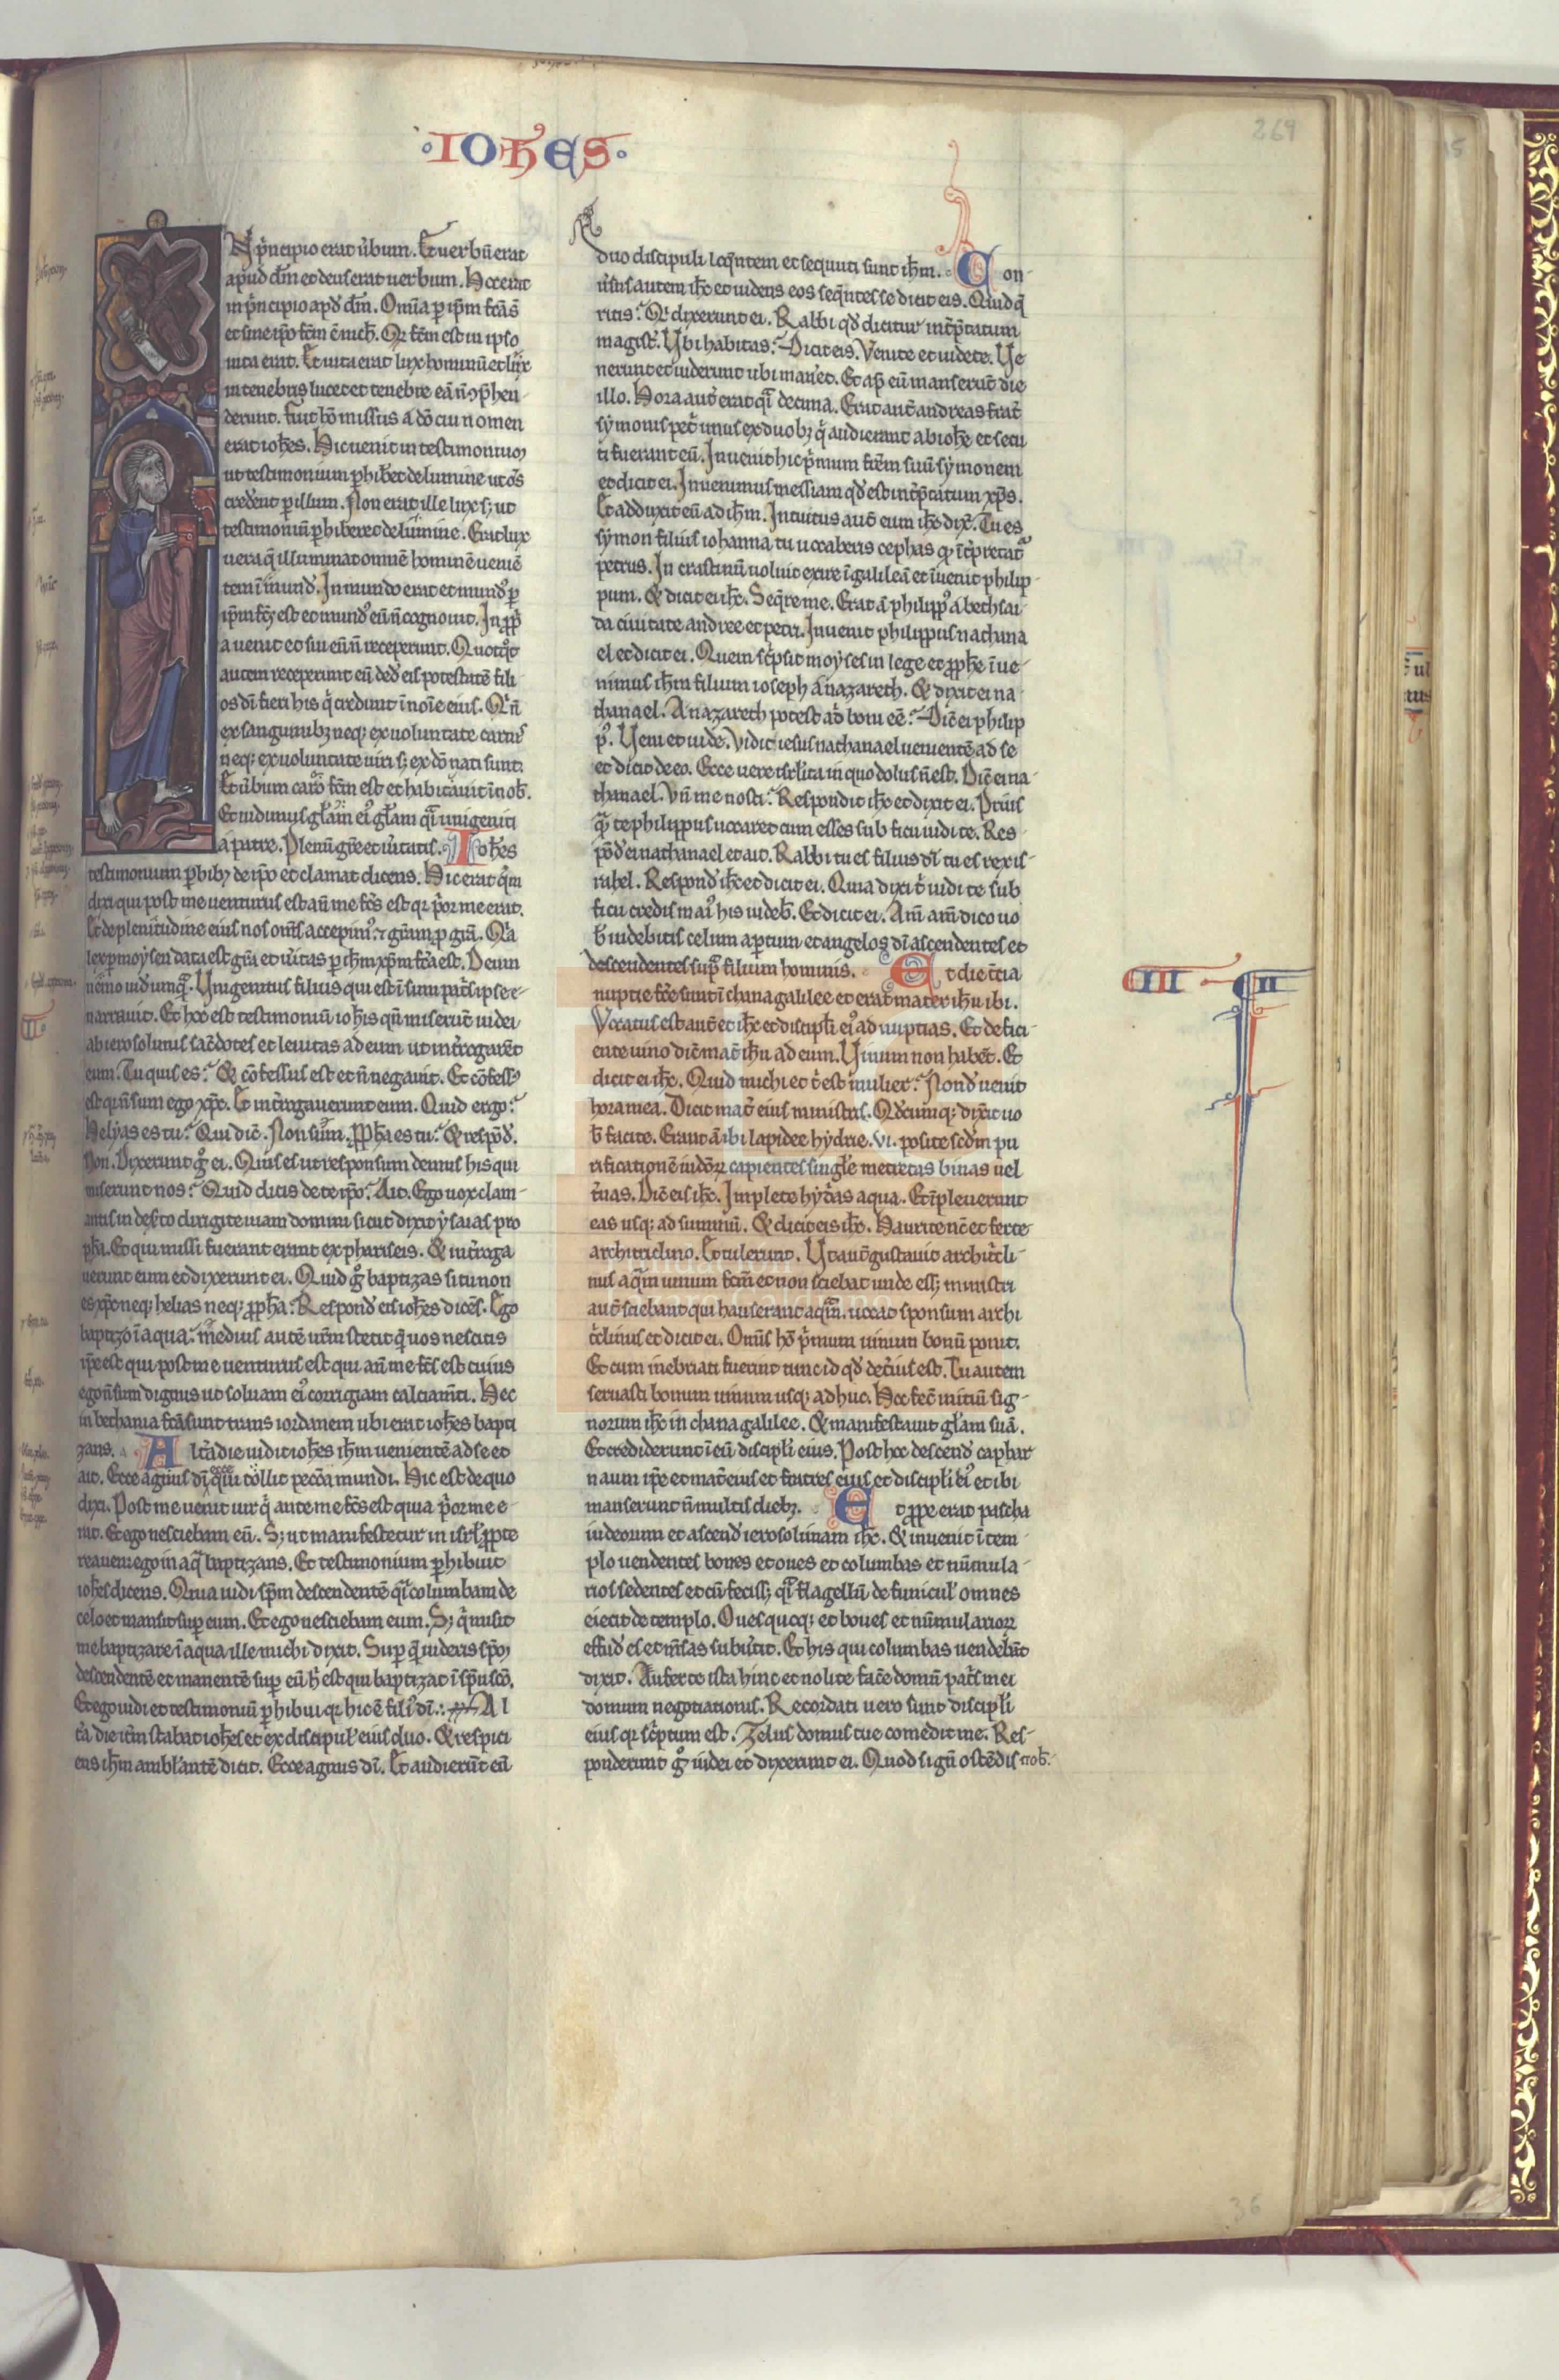 269
IOHES
N p̄ncipio erat ūbum. Et uerbū erat
apud dm̄ et deus erat uerbum. Hoc erat
in p̄ncipio apd dm̄. Om̄ia p ip̄m fc̄a s̄
et sine ip̄o fc̄m ē nich̄. Qd̄ fc̄m est in ipso
uita erat. Et uita erat lux hominū et lux
in tenebris lucet et tenebre eā n̄ 9p̄hen
derunt. fuit hō missus a dō cui nomen
erat ioh̄es. Hic uenit in testimoniuȝ
ut testimonium phib̄et de lumine ut oēs
crederent p illum. Non erat ille lux sȝ ut
testimoniū phiberet de lumine. Erat lux
uera q̄ illuminat omnē hominē uenie
tem ī mund̄. In mundo erat et mund9 p
ip̄m fc̄s est et mund9 eū n̄ cognouit. In pp̄
a uenit et sui eū n̄ receperunt. Quotq̄t
autem receperunt eū ded̄ eis potestatē fili
os dī fieri his q̄ credunt ī noīe eius. Q̄ n̄
ex sanguinibȝ neqȝ ex uoluntate carnis
neqȝ ex uoluntate uiri sȝ ex dō nati sunt.
Et ūbum caro fc̄m est et habitauit ī nob̄.
Et uidimus glām ei9 glām q̄i unigeniti
a patre. Plenū gr̄e et ūitatis. Ioh̄es
testimonium phibȝ de ip̄o et clamat dicens. Hic erat q̄m
dixi qui post me uenturus est an̄ me fc̄s est qr p̄or me erat.
Et de plenitudine eius nos om̄s accepim9 ⁊ gr̄am p gr̄a. Q̄a
lex p moysen data est gr̄a et ūitas p ih̄m xp̄m fc̄a est. Deum
nemo uid umq̄. Unigenitus filius qui est ī sinu patris ipse e
narrauit. Et hoc est testimoniū ioh̄is qn̄ miserūt iudei
ab ierosolimis sac̄dotes et leuitas ad eum ut int̄rogarēt
eum. Tu quis es? Et cōfessus est et n̄ negauit. Et cōfess9
est qr n̄ sum ego xp̄c. Et int̄rogauerunt eum. Quid ergo?
Helyas es tu? Qui dic̄. Non sum. Pph̄a es tu? Et respōd̄.
Non. Dixerunt g̊ ei. Quis es ut responsum demus his qui
miserunt nos? Quid dicis de te ip̄o? Ait. Ego uox clam
antis in desto dirigite uiam domini sicut dixit ysaias pro
ph̄a. Et qui missi fuerant erant ex phariseis. Et int̄roga
uerunt eum et dixerunt ei. Quid g̊ baptizas si tu non
es xp̄c neqȝ helias neqȝ pph̄a? Respond̄ eis ioh̄es dicēs. Ego
baptizo ī aqua. medius autē ūrm stetit q̄ uos nescitis
ip̄e est qui post me uenturus est qui an̄ me fc̄s est cuius
ego n̄ sum dignus ut soluam ei9 corrigiam calciam̄ti. Hec
in bethania fc̄a sunt trans iordanem ubi erat ioh̄es bapti
zans. Alt̄a die uidit ioh̄es ih̄m uenientē ad se et
ait. Ecce agnus dī ecce qui tollit pecc̄a mundi. Hic est de quo
dixi. Post me uenit uir q̄ ante me fc̄s est quia p̄or me e
rat. Et ego nesciebam eū. Sȝ ut manifestetur in isrl̄ ppte
rea ueni ego in aq̄ baptizans. Et testimonium phibuit
ioh̄es dicens. Quia uidi sp̄m descendentē q̄i columbam de
celo et mansit sup eum. Et ego nesciebam eum. Sȝ q̄ misit
me baptizare ī aqua ille michi dixit. Sup q̄ uideris sp̄ȝ
descendentē et manentē sup eū h̄ est qui baptizat ī sp̄u scō.
Et ego uidi et testimoniū phibui qr hic ē fili9 dī. Al
t̄a die it̄m stabat ioh̄es et ex discipul̄ eius duo. Et respici
ens ih̄m ambl̄antē dicit. Ecce agnus dī. Et audierūt eū
duo discipuli loq̄ntem et sequuti sunt ih̄m. Con
ūsus autem ih̄c et uidens eos seq̄ntes se dicit eis. Quid q̄
ritis? Q̄ dixerunt ei. Rabbi qd̄ dicitur int̄p̄tatum
magist̄. Ubi habitas? Dicit eis. Venite et uidete. Ve
nerunt et uiderunt ubi manet̄. Et ap̄ eū manserūt die
illo. Hora aut̄ erat q̄i decima. Erat aut̄ andreas frat̄
symonis pet̄ unus ex duobȝ q̄ audierant ab ioh̄e et secu
ti fuerant eū. Inuenit hic p̄mum fr̄em suū symonem
et dicit ei. Inuenimus messiam qd̄ est int̄p̄tatum xp̄s.
Et adduxit eū ad ih̄m. Intuitus aut̄ eum ih̄c dix̄. Tu es
symon filius iohanna tu uocaberis cephas qd̄ īt̄pretat̄
petrus. In crastinū uoluit exire ī galileā et īuenit philip
pum. Et dicit ei ih̄c. Seq̄re me. Erat ā philipp9 a bethsai
da ciuitate andree et petri. Inuenit philippus nathana
el et dicit ei. Quem sc̄psit moyses in lege et pph̄e īue
nimus ih̄m filium ioseph a nazareth. Et dixit ei na
thanael. A nazareth potest aq̄d boni eē? Dic̄ ei philip
p9. Ueni et uide. Vidit iesus nathanael uenientē ad se
et dicit de eo. Ecce uere isrl̄ita in quo dolus n̄ est. Dic̄ ei na
thanael. Vn̄ me nosti? Respondit ih̄c et dixit ei. Prius
q̄ te philippus uocaret cum esses sub ficu uidi te. Res
pōd̄ ei nathanael et ait. Rabbi tu es filius dī tu es rex is
rahel. Respond̄ ih̄c et dicit ei. Quia dixi t̄ uidi te sub
ficu credis mai9 his uideb̄. Et dicit ei. Am̄ am̄ dico uo
b̄ uidebitis celum aptum et angelos dī ascendentes et
descendentes sup̄ filium hominis. Et die t̄cia
nuptie fc̄e sunt ī chana galilee et erat mater ih̄u ibi.
Vocatus est aut̄ et ih̄c et discipl̄i ei9 ad nuptias. Et defici
ente uino dic̄ mat̄ ih̄u ad eum. Uinum non habēt. Et
dicit ei ih̄c. Quid michi et t̄ est mulier? Nond̄ uenit
hora mea. Dicit mat̄ eius ministris. Qd̄cumqȝ dix̄it uo
b̄ facite. Erant ā ibi lapidee hydrie .vi. posite scd̄m pu
rificationē iudeoꝝ capientes singl̄e metretas binas uel
t̄nas. Dic̄ eis ih̄c. Implete hyd̄as aqua. Et īpleuerunt
eas usqȝ ad summū. Et dicit eis ih̄c. Haurite nc̄ et ferte
architriclino. Et tulerunt. Ut aut̄ gustauit archit̄cli
nus aq̄m uinum fc̄m et non sciebat unde essȝ ministri
aut̄ sciebant qui hauserant aq̄m. uocat sponsum archi
t̄clinus et dicit ei. Om̄is hō p̄mum uinum bonū ponit.
Et cum inebriati fuerint tunc id qd̄ det̄ius est. Tu autem
seruasti bonum uinum usqȝ adhuc. Hoc fec̄ initiū sig
norum ih̄c in chana galilee. Et manifestauit glām suā.
Et crediderunt ī eū discipl̄i eius. Post hoc descend̄ caphar
naum ip̄e et mat̄ eius et fratres eius et discipl̄i ei9 et ibi
manserunt n̄ multis diebȝ. Et ppe erat pascha
iudeorum et ascend̄ ierosolimam ih̄c. Et inuenit ī tem
plo uendentes boues et oues et columbas et nūmula
rios sedentes et cū fecissȝ q̄i flagellū de funicul̄ omnes
eiecit de templo. Oues quoqȝ et boues et nūmularioꝝ
effud̄ es et m̄sas subūtit. Et his qui columbas uendebāt
dixit. Auferte ista hinc et nolite fac̄e domū pat̄s mei
domum negotiationis. Recordati uero sunt discipl̄i
eius qr sc̄ptum est. Zelus domus tue comedit me. Res
ponderunt g̊ iudei et dixerunt ei. Quod signū ostēdis nob̄.
II
III
36